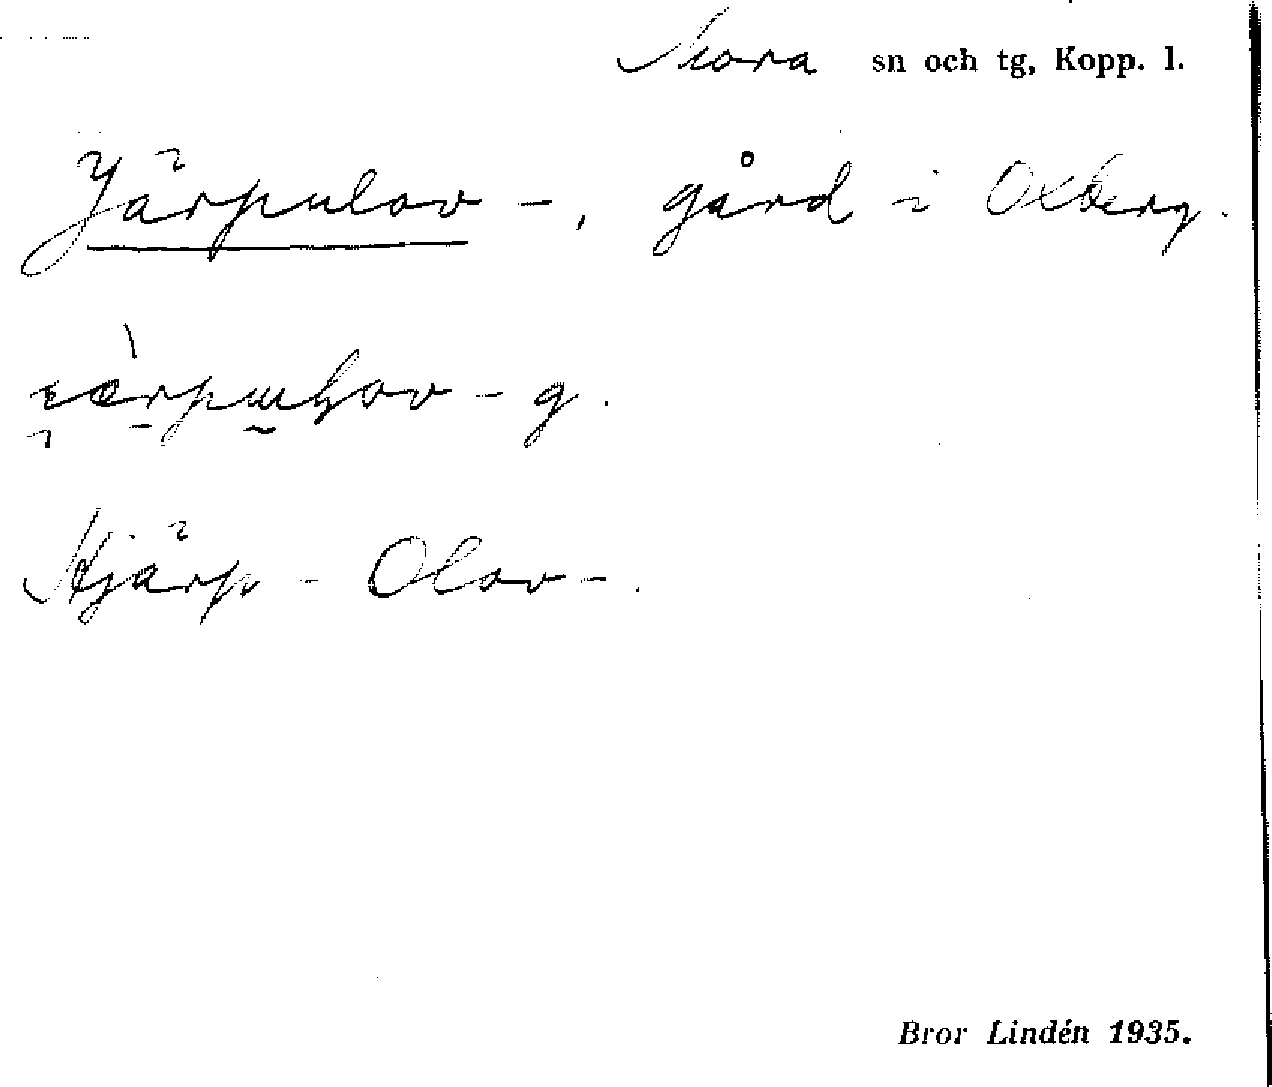 Mora sn och tg, Kopp. l.
Järpulov -, gård i Oxberg.
- g.
Hjärp - Olov -.
Bror Lindén 1935.